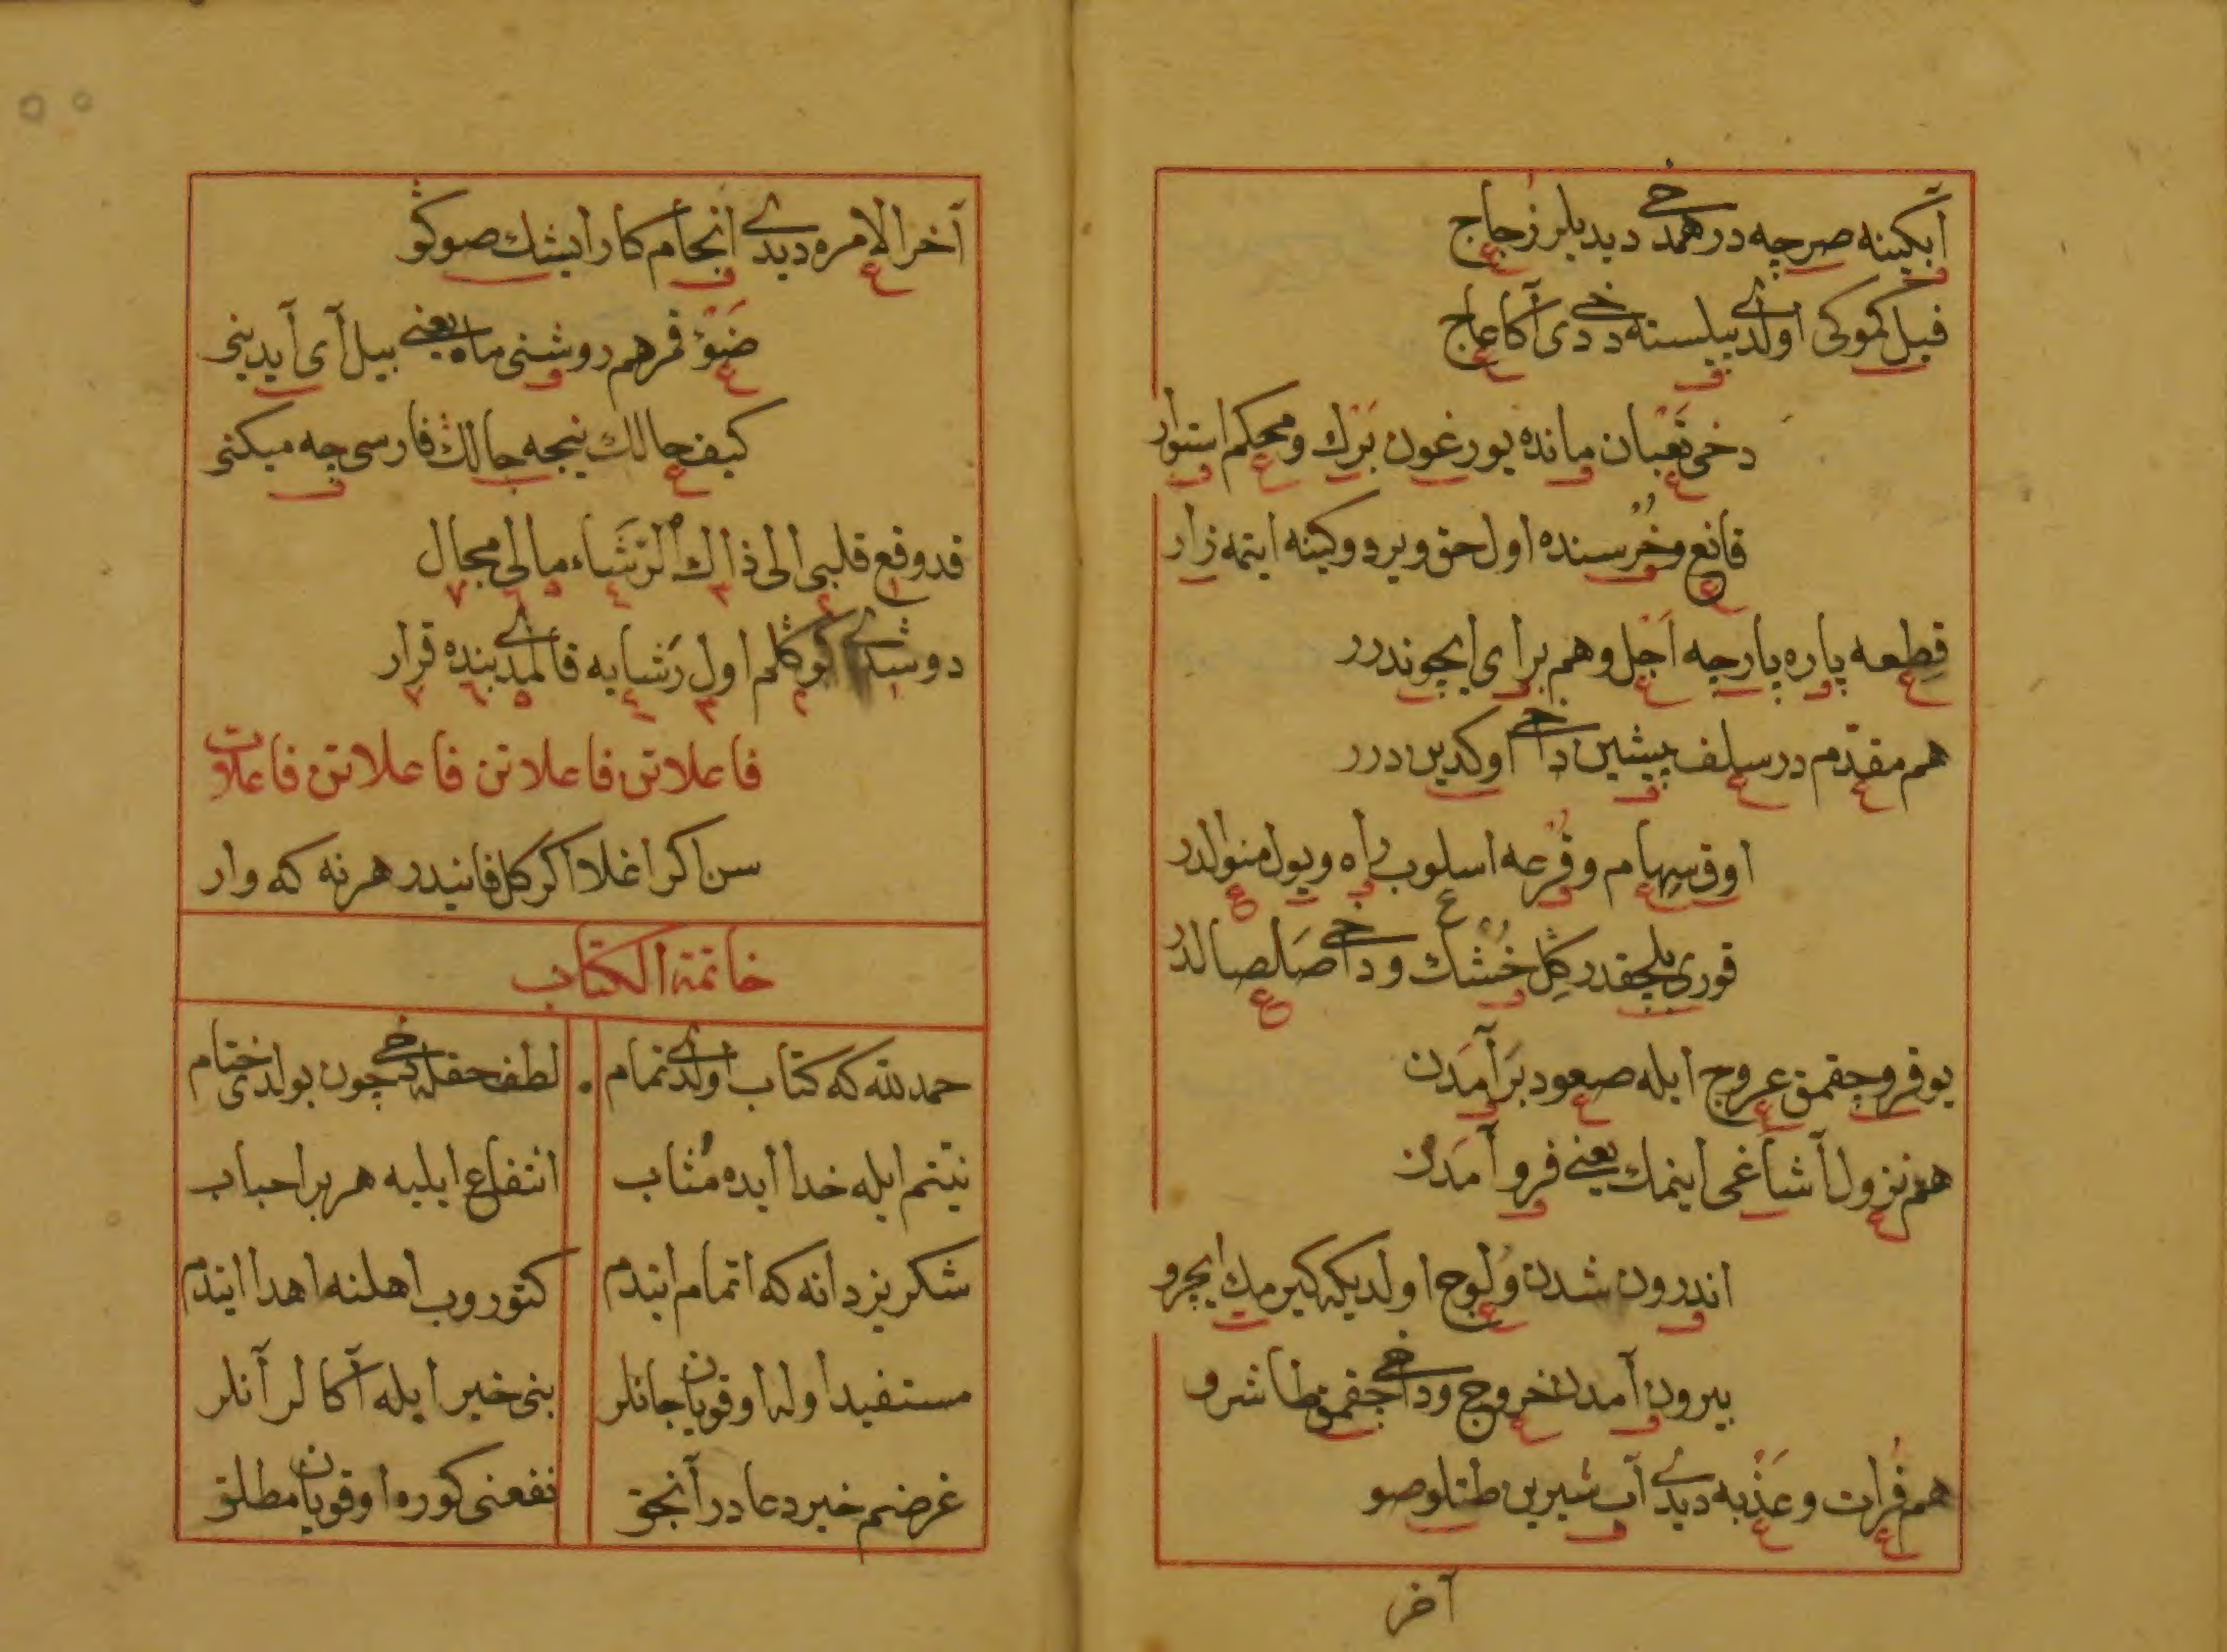 آبكینه صرچه در همدخی دیدیلر زجاج
فیل كموكی اولدی پیلسته دخی دی آكا عاج
دخی تعبان مانده یورغون بَرْك و محكم استوار
قانع و خُرسنده اول حق ویردوكینه ایتمه زار
قِطعه پاره پارچه اَجْل و هم برای ایچوندرر
هم مقدّم در سلف پیشین داخی اوكدین درر
اوق سِهام و قُرعه اسلوب راه و یول منوالدر
قوری بلچقدر كِلِ خُشْك و داخی صَلصالدُر
یوقرو چقمق عروج ایله صعود بَرآمَدن
هم نزول اَشاغی اینمك یعنی فرو آمَدن
اندرون شدن وُلوج اولدیكه كیرمك ایچرو
بیرون آمدن خروج و داخی چقمق طاشرو
هم فُرات و عَذْبه دیدی آب شیرین طتلو صو
آخر
آخر الامره دیدی انجام كار ایشك صوكو
ضَوْءِ قمر هم روشنی ماه یعنی بیل آی آیدینی
كیف حالك نیجه حالك فارسی چه میكنی
قد وقع قلبی الی ذاك الرَّشَاء مالی مجال
دوشدی كوكلم اول رَشایه قالمدی بنده قرار
فاعلاتن فاعلاتن فاعلاتن فاعلات
سن اكر اغلا اكر كل فانیدر هر نه كه وار
خاتمة الكتاب
حمد لله كه كتاب اولدی تمام . لطف حقله دخی چون بولدی ختام
نیّتم ایله خدا ایده مُثاب انتفاع ایلیه هر بر احباب
شكر یزدانه كه اتمام ایتدم كتوروب اهلنه اهدا ایتدم
مستفید اوله اوقویان جانلر بنی خیر ایله آكالر آنلر
غرضم خیر دعادر آنجق نفعنی كوره اوقویان مطلق